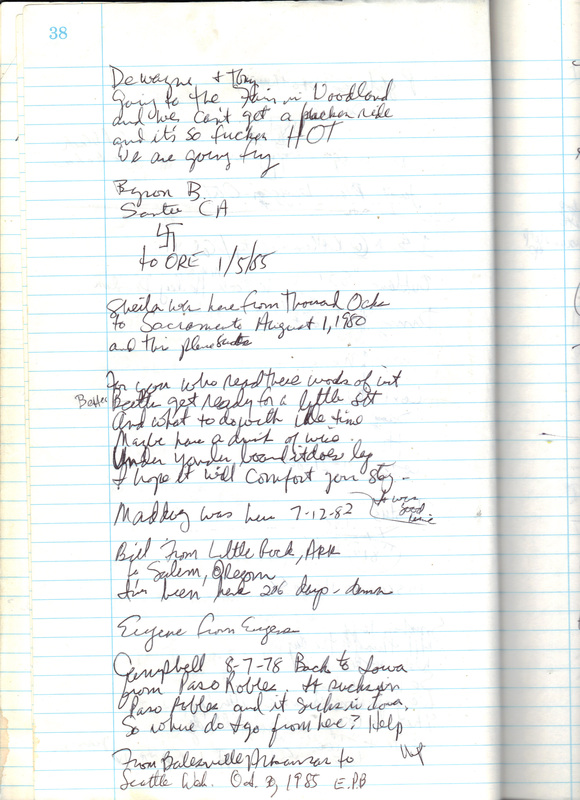 38
Dewayne + Tony
going to the Fair in Woodland
and we can't get a fucken ride
and it's so fucken HOT
We are going fry
Byron B.
Santee CA
卐
to ORE 1/5/85
Sheila was here from Thousand Oaks
to Sacramento August 1, 1980
and this place sucks
For you who read these words of wit
Better get ready for a little sit
And what to do with the time
Maybe have a drink of wine
Under yonder board it does lay
I hope it will comfort your stay -
Maddog was here 7-12-82
it was
good
wine
Bill From Little Rock, ARK
to Salem, Oregon
I've been here 206 days - damn
Eugene from Eugene
Campbell 8-7-78 Back to Iowa
from Paso Robles. It sucks in
Paso Robles and it sucks in Iowa,
So where do I go from here? Help
From Batesville Arkansas to
Seattle Wash. Oct. 1985 E.P.B